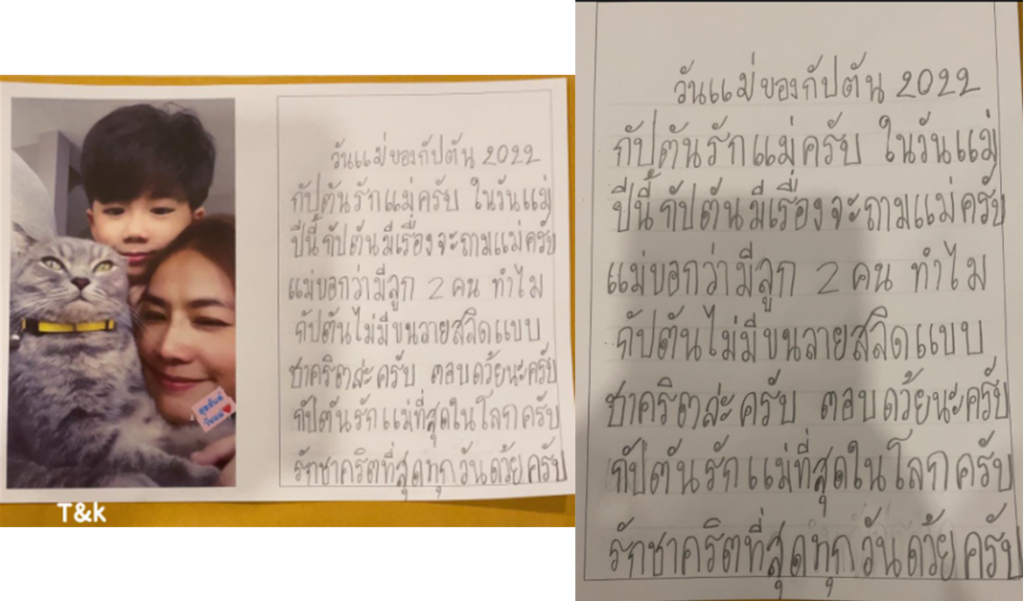 สุขสันต์
วันแม่
T&k
วันแม่ของกัปตัน 2022
กัปตันรักแม่ครับ ในวันแม่
ปีนี้ กัปตันมีเรื่องจะถามแม่ครับ
แม่บอกว่ามีลูก 2 คน ทำไม
กัปตันไม่มีขนลายสลิดแบบ
ชาคริตล่ะครับ ตอบด้วยนะครับ
กัปตันรักแม่ที่สุดในโลกครับ
รักชาคริตที่สุดทุกวันด้วยครับ
วันแม่ของกัปตัน 2022
กัปตันรักแม่ครับ ในวันแม่
ปีนี้ กัปตันมีเรื่องจะถามแม่ครับ
แม่บอกว่ามีลูก 2 คน ทำไม
กัปตันไม่มีขนลายสลิดแบบ
ชาคริตล่ะครับ ตอบด้วยนะครับ
กัปตันรักแม่ที่สุดในโลกครับ
รักชาคริตที่สุดทุกวันด้วยครับ